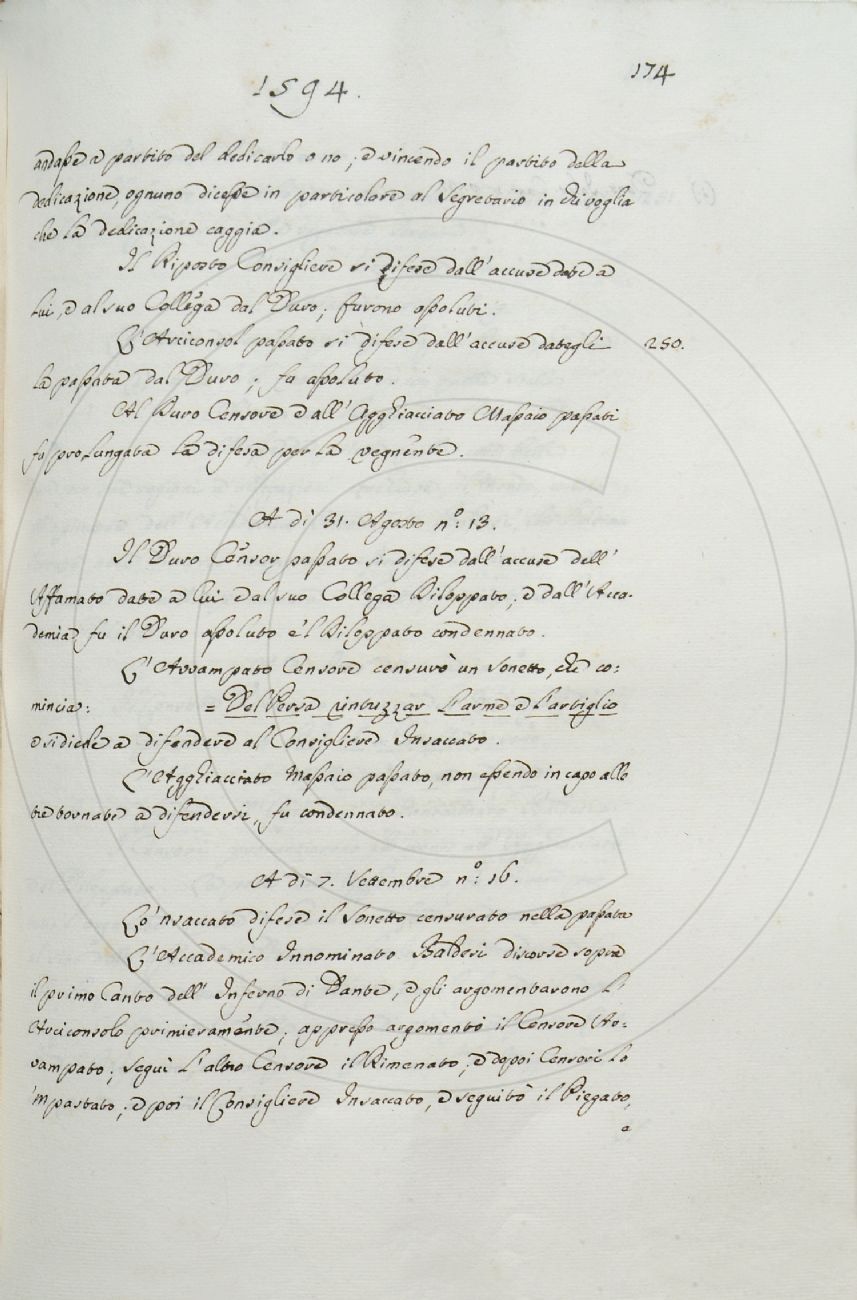 1594.
174
andasse a partito del dedicarlo o no; e vincendo il partito della
dedicazione, ognuno dicesse in particolare al Segretario in chi voglia
che la dedicazione caggia.
Il Riposto Consigliere si difese dall'accuse date a
lui, e al suo Collega dal Duro; furono assoluti.
L'Arciconsol passato si difese dall'accuse dategli
250.
la passata dal Duro; fu assoluto.
Al Duro Censore e all'Agghiacciato Massaio passati
fu prolungata la difesa per la vegnente.
A dì 31. Agosto n.º: 13.
Il Duro Censor passato si difese dall'accuse dell'
Affamato date a lui e al suo Collega Diloppato; e dall'Acca-
demia fu il Duro assoluto e'l Diloppato condennato.
L'Avvampato Censore censurò un Sonetto, che co:
mincia: = Del Persa rintuzzar l'arme e l'artiglio
e si diche a difendere al Consigliere Insaccato.
L'Agghiacciato Massaio passato, non essendo in capo alle
tre tornate a difendersi, fu condennato.
A dì 7. Settembre n.º: 16.
Lo 'nsaccato difese il Sonetto censurato nella passata
L'Accademico Innominato Baldesi discorse sopra
il primo Canto dell'Inferno di Dante, e gli argomentarono l'
Arciconsolo primieramente; appresso argomentò il Censore Av:
vampato; seguì l'altro Censore il Rimenato; e dopoi Censori lo
'mpastato; e poi il Consigliere Insaccato, e seguitò il Piegato,
a